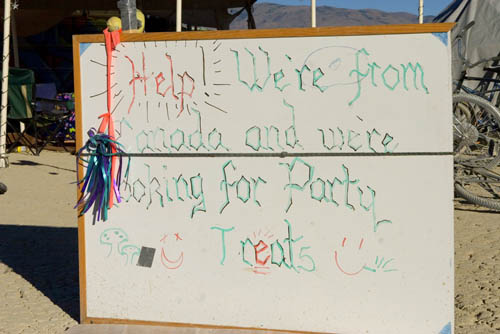 Help! We're from
Canada and we're
Looking for Party
Treats